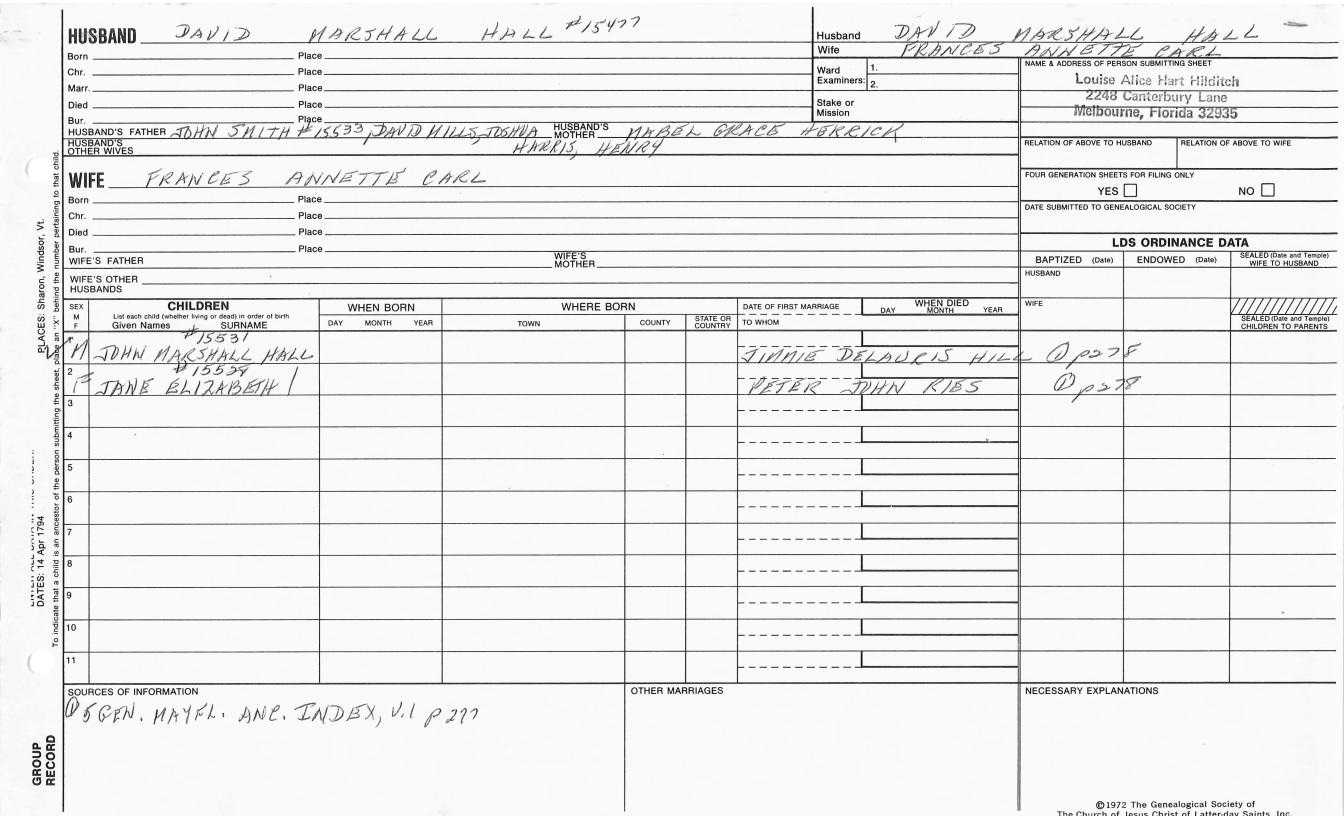 HUSBAND DAVID MARSHALL HALL #15477
Born Place
Chr. Place
Marr. Place
Died Place
Bur. Place
HUSBAND'S FATHER JOHN SMITH #15533, DAVID MILLS, JOSHUA HUSBAND'S MOTHER MABEL GRACE HERRICK
HUSBAND'S OTHER WIVES HARRIS, HENRY
Husband DAVID MARSHALL HALL
Wife FRANCES ANNETTE CARL
Ward Examiners: 1.
2.
Stake or Mission
NAME & ADDRESS OF PERSON SUBMITTING SHEET
Louise Alice Hart Hilditch
2248 Canterbury Lane
Melbourne, Florida 32935
RELATION OF ABOVE TO HUSBAND RELATION OF ABOVE TO WIFE
FOUR GENERATION SHEETS FOR FILING ONLY
YES NO
DATE SUBMITTED TO GENEALOGICAL SOCIETY
WIFE FRANCES ANNETTE CARL
Born Place
Chr. Place
Died Place
Bur. Place
WIFE'S FATHER WIFE'S MOTHER
WIFE'S OTHER HUSBANDS
LDS ORDINANCE DATA
BAPTIZED (Date) ENDOWED (Date) SEALED (Date and Temple) WIFE TO HUSBAND
HUSBAND
WIFE
SEALED (Date and Temple) CHILDREN TO PARENTS
SEX M F
CHILDREN
List each child (whether living or dead) in order of birth
Given Names SURNAME
WHEN BORN
DAY MONTH YEAR
WHERE BORN
TOWN COUNTY STATE OR COUNTRY
DATE OF FIRST MARRIAGE
TO WHOM
WHEN DIED
DAY MONTH YEAR
#15531
1 M JOHN MARSHALL HALL JIMMIE DELAURIS HILL ① p278
#15529
2 F JANE ELIZABETH | PETER JOHN RIES ① p278
3
4
5
6
7
8
9
10
11
SOURCES OF INFORMATION
① 5 GEN. MAYFL. ANC. INDEX, V.1 p 277
OTHER MARRIAGES
NECESSARY EXPLANATIONS
©1972 The Genealogical Society of
The Church of Jesus Christ of Latter-day Saints, Inc.
PLACES: Sharon, Windsor, Vt.
DATES: 14 Apr 1794
To indicate that a child is an ancestor of the person submitting the sheet, place an "X" behind the number pertaining to that child.
GROUP RECORD